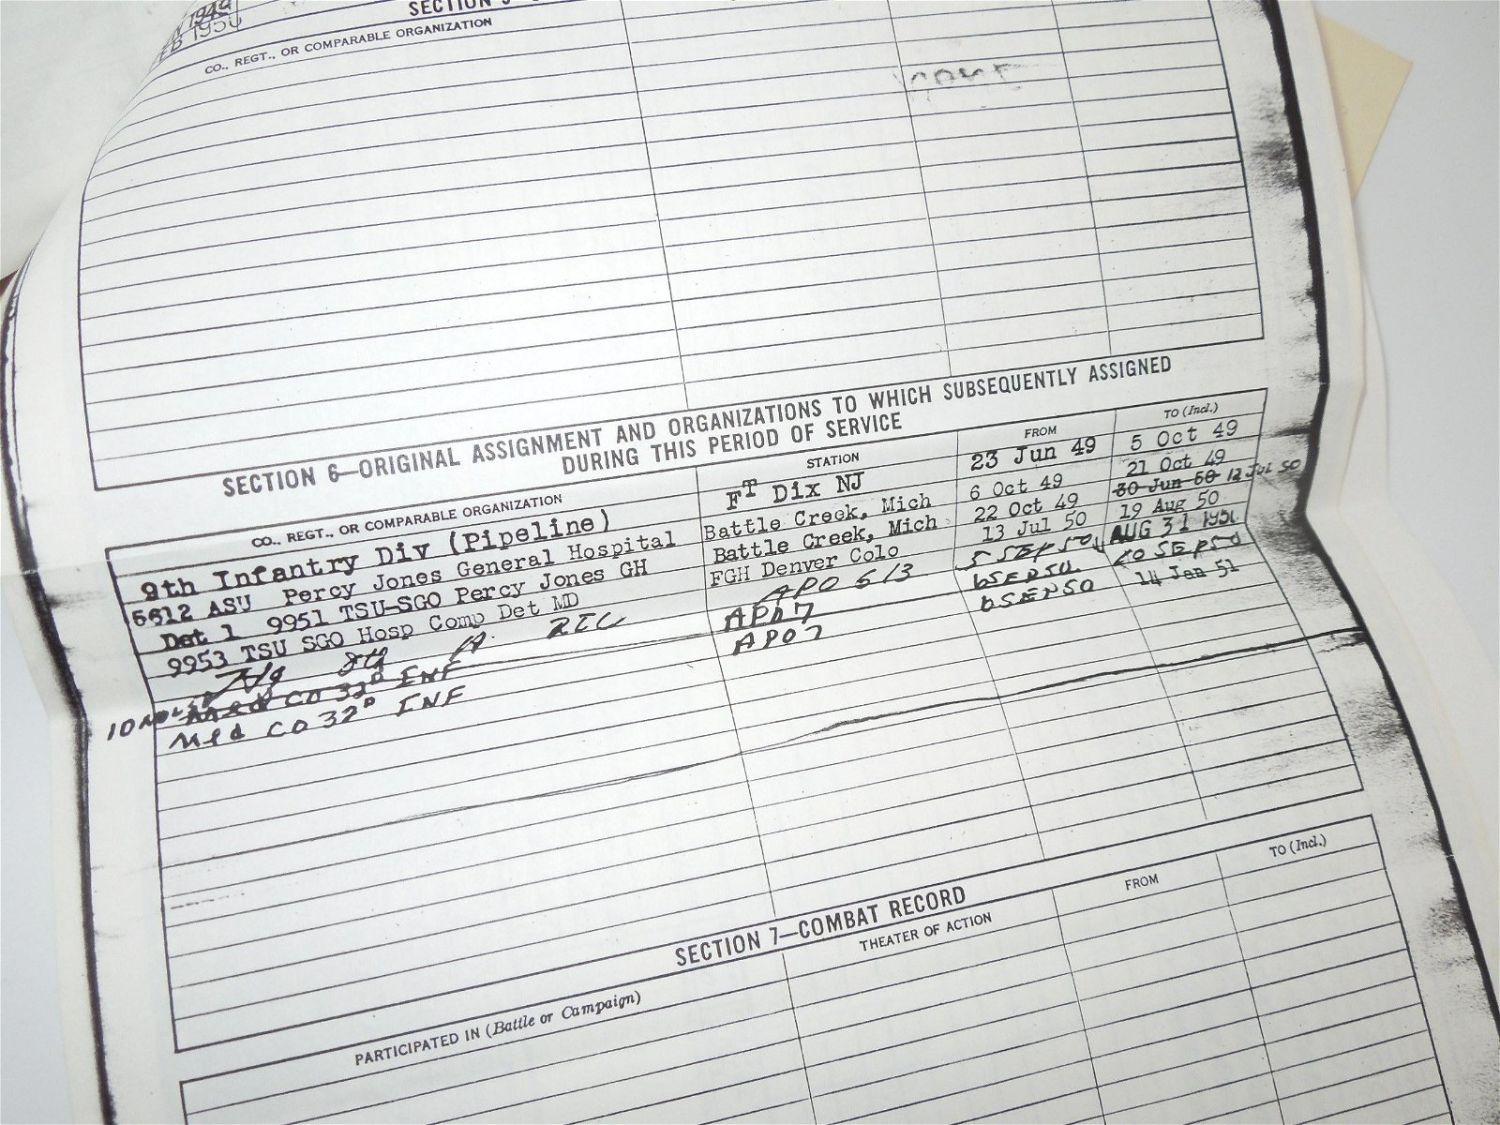 1949
1950
SECTION
CO., REGT., OR COMPARABLE ORGANIZATION
SECTION 6—ORIGINAL ASSIGNMENT AND ORGANIZATIONS TO WHICH SUBSEQUENTLY ASSIGNED
DURING THIS PERIOD OF SERVICE
CO., REGT., OR COMPARABLE ORGANIZATION STATION FROM TO (Incl.)
9th Infantry Div (Pipeline) FT Dix NJ 23 Jun 49 5 Oct 49
5612 ASU Percy Jones General Hospital Battle Creek, Mich 6 Oct 49 21 Oct 49
Det 1 9951 TSU-SGO Percy Jones GH Battle Creek, Mich 22 Oct 49 30 Jun 50 12 Jul 50
9953 TSU SGO Hosp Comp Det MD FGH Denver Colo 13 Jul 50 19 Aug 50
8th A APO 613 5 SEP 50 AUG 31
Med CO 32D INF APO 7 6 SEP 50
Med CO 32D INF APO 7 6 SEP 50 14 Jan 51
SECTION 7—COMBAT RECORD
PARTICIPATED IN (Battle or Campaign) THEATER OF ACTION FROM TO (Incl.)